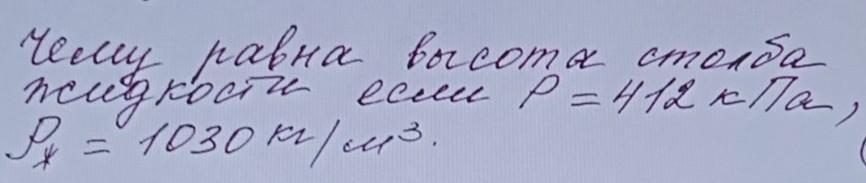 Чему равна высота столба
жидкости если P = 412 кПа,
ρж = 1030 кг/м³.